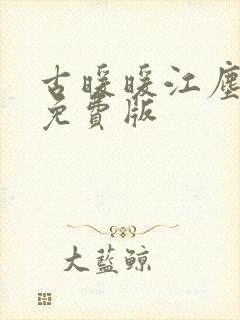 古暖暖江塵
免費版
大藍鯨